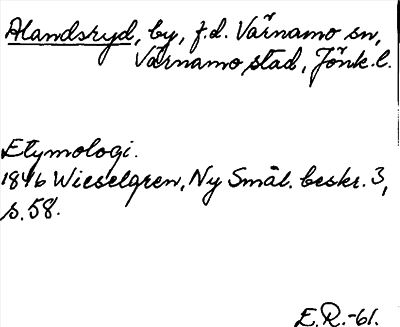 Alandsryd, by, f.d. Värnamo sn,
Värnamo stad, Jönk. l.
Etymologi.
1846 Wieselgren, Ny Smål. beskr. 3,
s. 58.
E.R.-61.